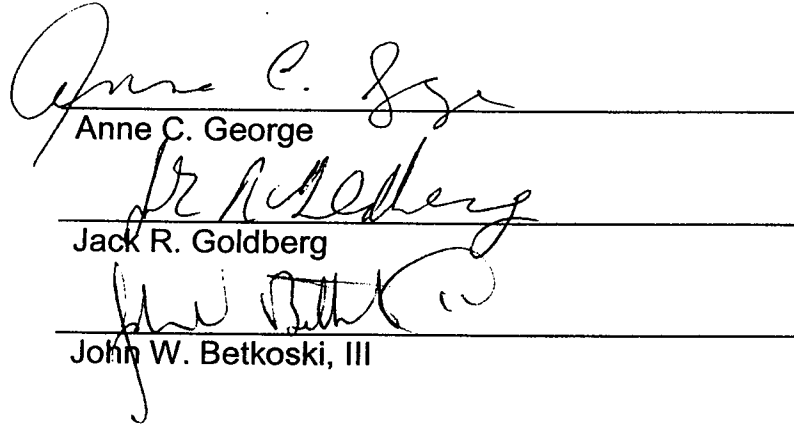 Anne C. George
Anne C. George
Jack R. Goldberg
Jack R. Goldberg
John W. Betkoski, III
John W. Betkoski, III